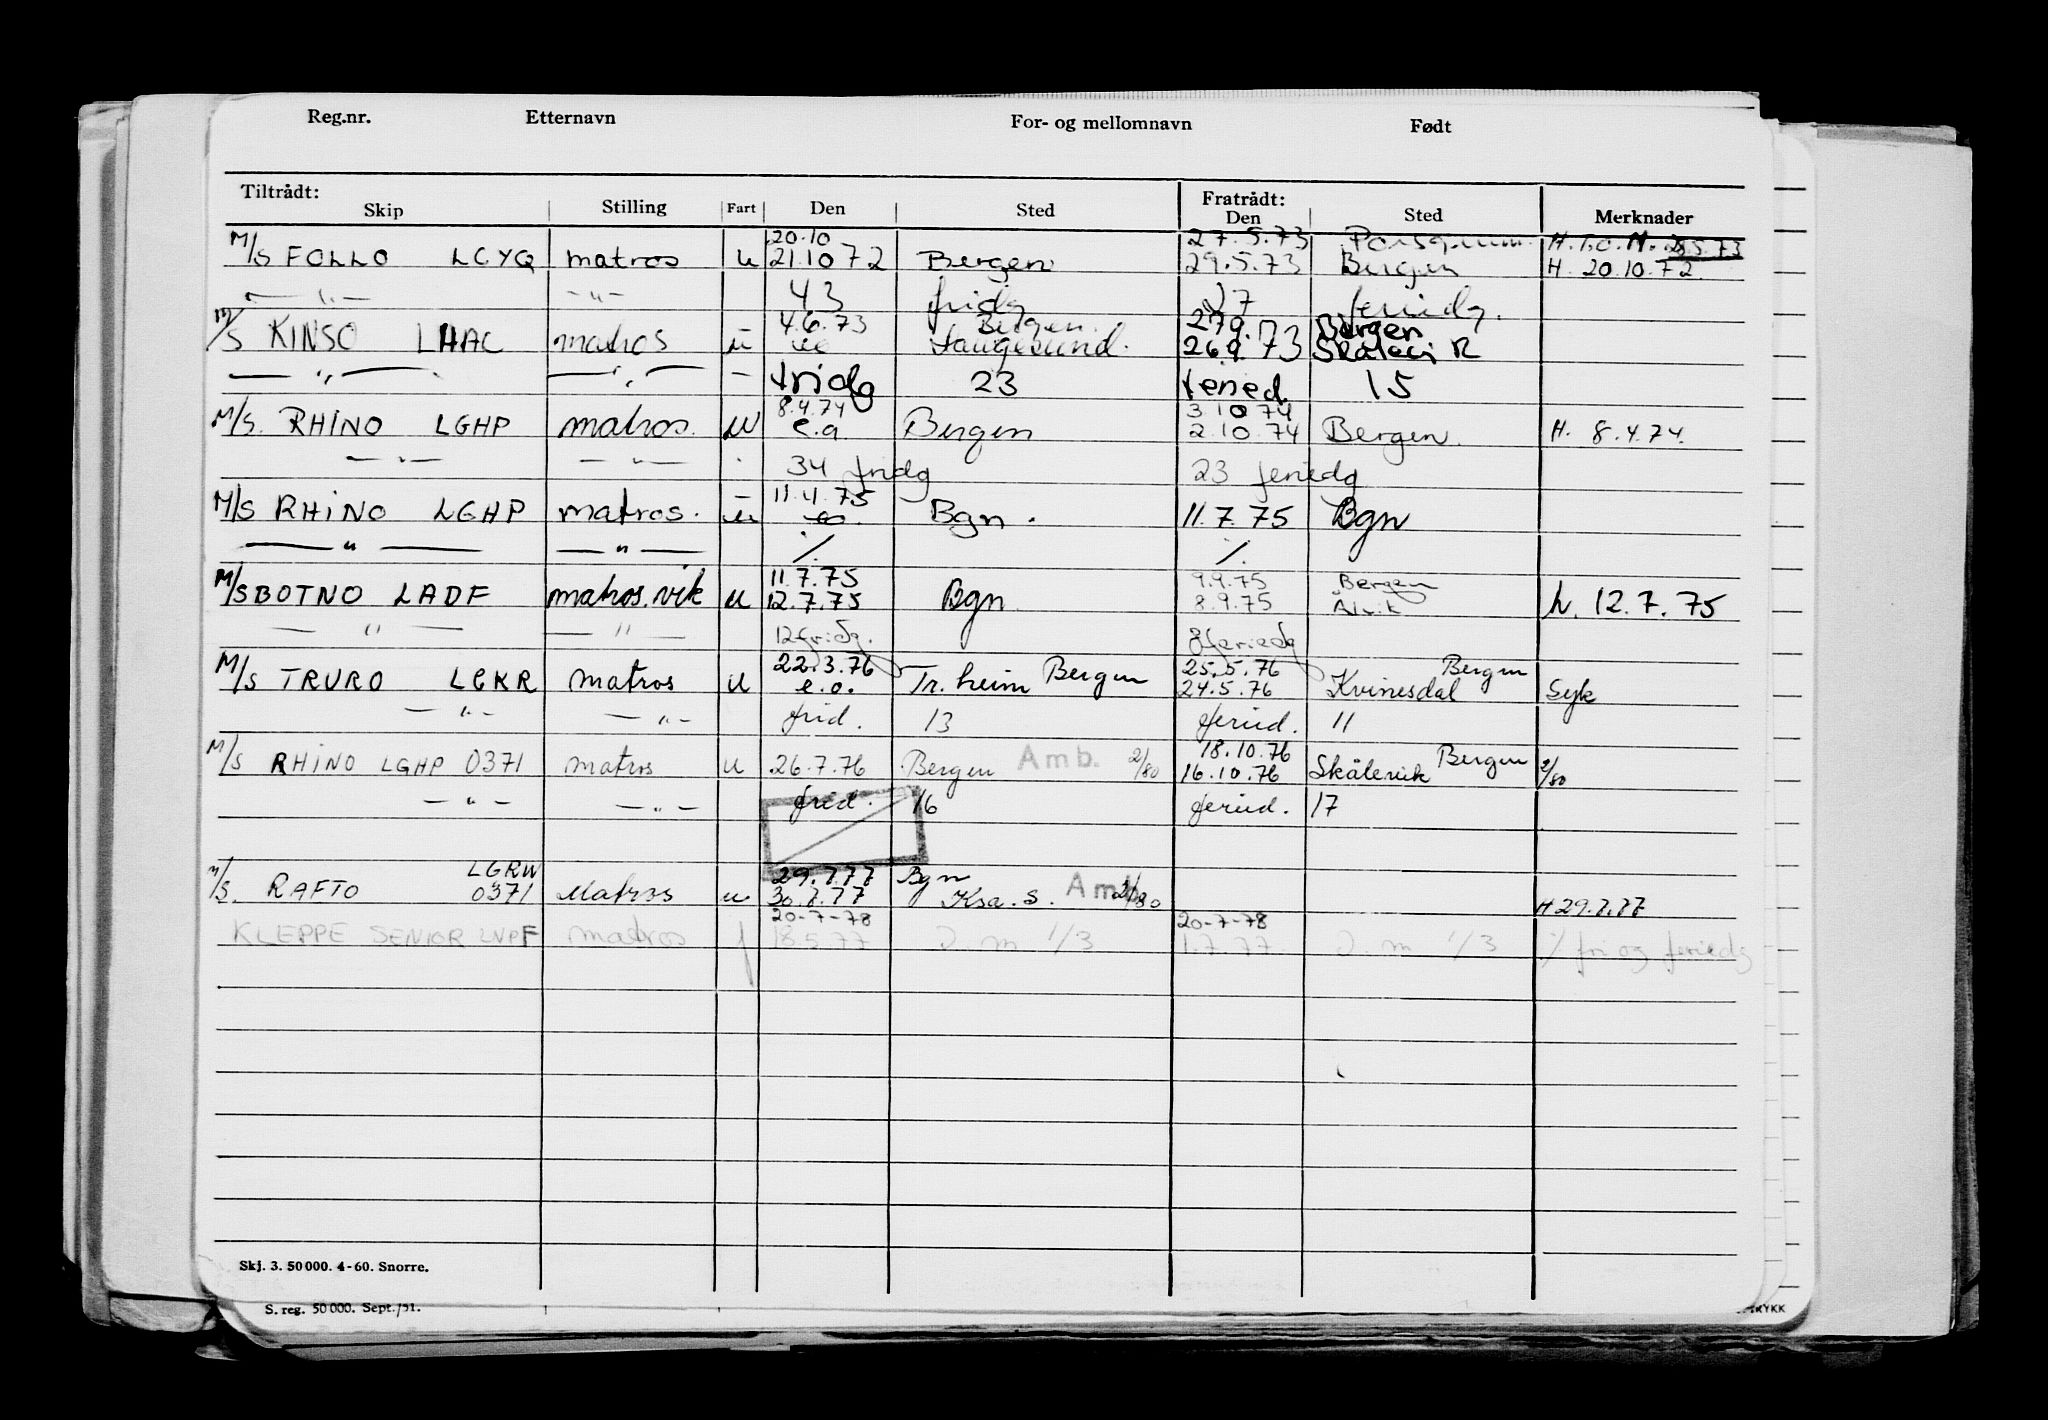 Reg.nr. Etternavn For- og mellomnavn Født
Tiltrådt: Fratrådt:
Skip Stilling Fart Den Sted Den Sted Merknader
20.10 27.5.73 H. T.o.M. 28.5.73
M/S FOLLO LCYQ matros u 21.10 72 Bergen 29.5.73 Bergen H. 20.10.72.
— " — — " — 43 fridg 27 feriedg.
4.6.73 Bergen 27.9.73 Bergen
M/S KINSO LHAC matros u Langesund. 26.9.73
— " — — " — — fridg 23 feried. 15
8.4.74 3.10.74
M/S. RHINO LGHP matros. u e.a. Bergen 2.10.74 Bergen. H. 8.4.74.
— " — — " — 34 fridg 23 feriedg
11.4.75
M/S RHINO LGHP matros. u Bgn. 11.7.75 Bgn
— " — — " — % %
11.7.75 9.9.75 Bergen
M/S BOTNO LADF matros.vik u 12.7.75 Bgn 8.9.75 Ålvik h. 12.7.75
— " — — " — 12 fridg. 8 feriedg
22.3.76 25.5.76 Bergen
M/S TRURO LGKR matros u e.o. Tr.heim Bergen 24.5.76 Kvinesdal Syk
— " — — " — frid. 13 feried. 11
18.10.76 Bergen
M/S RHINO LGHP 0371 matros u 26.7.76 Bergen Amb. 2/80 16.10.76 Skålevik 2/80
— " — — " — frid. 16 feried. 17
LGRW 29.7.77 Bgn
M/S. RAFTO 0371 Matros u 30.7.77 Ksa.S. Amb. 2/80 H 29.7.77
20-7-78 20-7-78
KLEPPE SENIOR LNPF matros f 18.5.77 D.m 1/3 1.7.77. D.m 1/3 % fri og feriedg
Skj. 3. 50 000. 4-60. Snorre.
S. reg. 50 000. Sept./51.